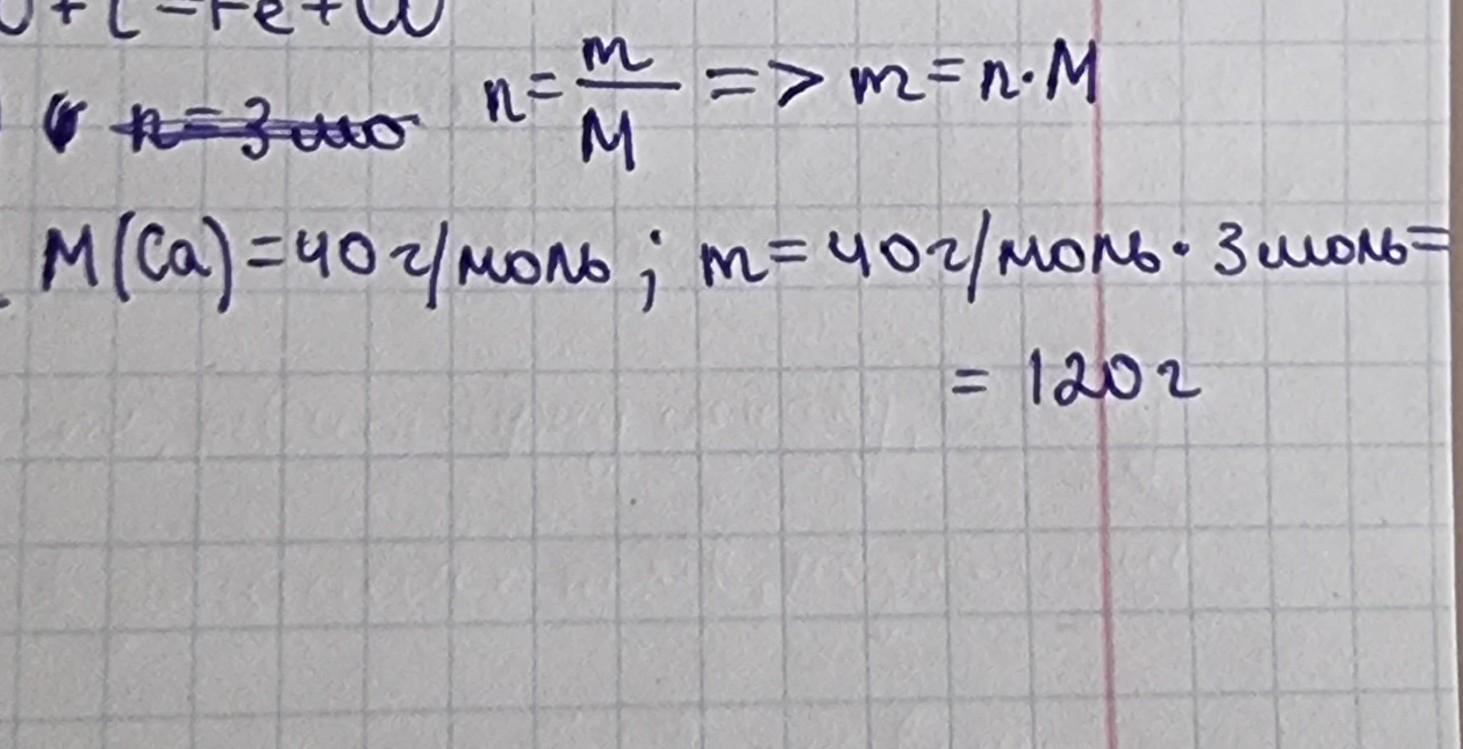 + C = Fe + CO
n = m/M => m = n·M
M(Ca) = 40 г/моль ; m = 40 г/моль · 3 моль =
= 120 г